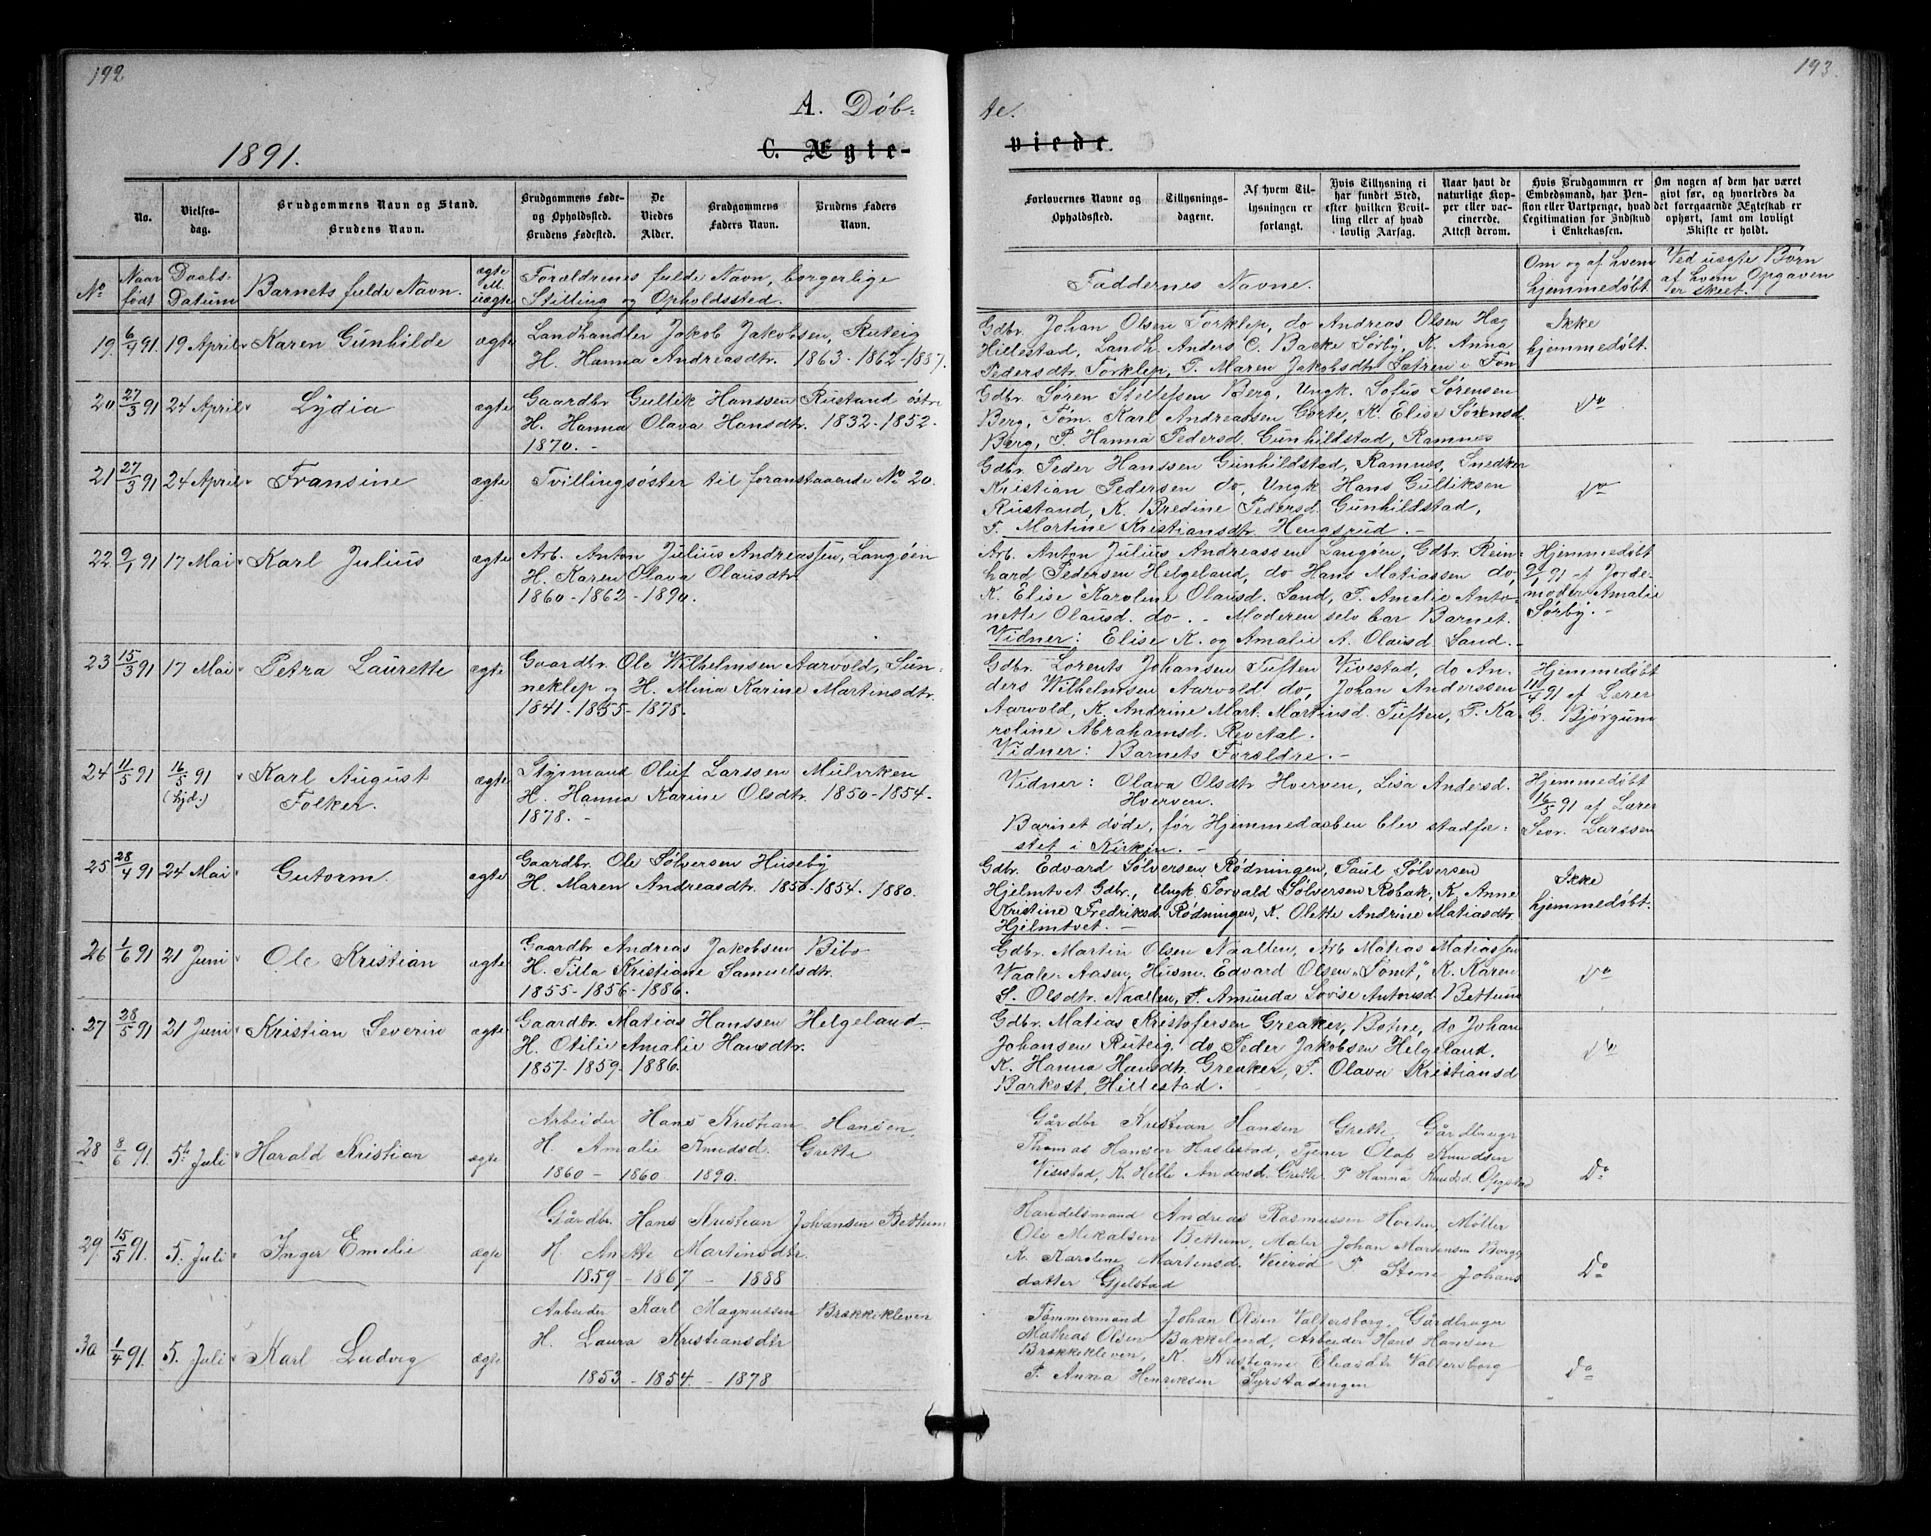 192
193.
A. Døb-
te.
1891.
C. Ægte-
viede.
No.
Vielses-
dag.
Brudgommens Navn og Stand.
Brudens Navn.
Brudgommens Føde-
og Opholdssted.
Brudens Fødested.
De
Viedes
Alder.
Brudgommens
Faders Navn.
Brudens Faders
Navn.
Forlovernes Navne og
Opholdssted.
Tillysnings-
dagene.
Af hvem Til-
lysningen er
forlangt.
Hvis Tillysning ei
har fundet Sted,
efter hvilken Bevil-
ling eller af hvad
lovlig Aarsag.
Naar havt de
naturlige Kop-
per eller vac-
cinerede.
Attest derom.
Hvis Brudgommen er
Embedsmand, har Pen-
sion eller Vartpenge, hvad
Legitimation for Indskud
i Enkekassen.
Om nogen af dem har været
givt før, og hvorledes da
det foregaaende Ægteskab er
ophørt, samt om lovligt
Skifte er holdt.
No
Naar
født
Daabs-
Datum
Barnets fulde Navn.
ægte
uægte
Forældrenes fulde Navn, borgerlige
Stilling og Opholdssted.
Faddernes Navne.
Om og af hvem
hjemmedøbt
Ved uægte Børn
af hvem Opgaven
er skeet.
19 6/4 91 19 April Karen Gunhilde ægte
Landhandler Jakob Jakobsen, Ruteig
H. Hanna Andreasdtr. 1863-1862-1887.
Gdbr. Johan Olsen Torklep, do Andreas Olsen Hæg
Hillestad, Landh. Anders C. Bache Sørby, K. Anna
Pedersdtr. Torklep, P. Maren Jakobsdtr. Sætren i Fon
Ikke
hjemmedøbt.
20 27/3 91 24 April Lydia ægte
Gaardbr Gullik Hanssen Rustand østr
H. Hanna Olava Hansdtr. 1832-1852-
1870. -
Gdbr. Søren Stellefsen Berg, Ungk. Sofus Sørensen
Berg, Tøm. Karl Andreassen Gorte, K. Elise Sørensd.
Berg, P. Hanna Pedersd. Gunhildstad, Ramnes
do
21 27/3 91 24 April Fransine ægte
Tvillingsøster til foranstaaende No 20.
Gdbr. Peder Hanssen Gunhildstad, Ramnes, Snedker
Kristian Pedersen do, Ungk Hans Gulliksen
Rustand, K. Bredine Pedersd. Gunhildstad,
P. Martine Kristiansdtr. Hengsrud -
do
22 9/1 91 17 Mai Karl Julius ægte
Arb. Anton Julius Andreassen, Langøen
H. Karen Olava Olausdtr.
1860-1862-1890.
Arb. Anton Julius Andreassen Langøen, Gdbr. Rein-
hard Pedersen Helgeland, do Hans Matiassen do,
K. Elise Karoline Olausd. Sand, P. Amalie Anto-
nette Olausd. do. - Moderen selv bar Barnet.
Vidner: Elise K. og Amalie A. Olausd. Sand.
Hjemmedøbt
9/1 91 af Jorde-
moder Amalie
Sørby. -
23 15/3 91 17 Mai Petra Laurette ægte
Gaardbr. Ole Wilhelmsen Aarvold, Sun-
neklep og H. Mina Karine Martinsdtr.
1841-1855-1878.
Gdbr. Lorents Johansen Tuften Vivestad, do An-
ders Wilhelmsen Aarvold do, Johan Anderssen
Aarvold, K. Andrine Mart. Martinsd. Tuften, P. Ka-
roline Abrahamsd. Revetal.
Vidner: Barnets Forældre. -
Hjemmedøbt
11/4 91 af Lærer
G. Bjørgum
24 11/5 91 16/5 91 Karl August
Folker. ægte
Styrmand Oluf Larssen Mulvrken
H. Hanna Karine Olsdtr. 1850-1854-
1878. -
Vidner: Olava Olsdtr Hverven, Lisa Andersd.
Hverven.
Barnet døde, før Hjemmedaaben blev stadfæ-
stet i Kirken. -
Hjemmedøbt
16/5 91 af Lærer
Sevr. Larssen
25 28/4 91 24 Mai Gutorm. ægte
Gaardbr. Ole Sølversen Huseby
H. Maren Andreasdtr. 1850-1854-1880.
Gdbr. Edvard Sølversen Rødningen, Paul Sølversen
Hjelmtvet Gdbr., Ungk Torvald Sølversen Robak, K. Anne
Kristine Fredriksd. Rødningen, K. Olette Andrine Matiasdtr.
Hjelmtvet. -
Ikke
hjemmedøbt.
26 1/6 91 21 Juni Ole Kristian ægte
Gaardbr Andreas Jakobsen Bibo
H. Tilla Kristiane Samuelsdtr.
1855-1856-1886.
Gdbr. Martin Olsen Naallen, Arb Matias Matiassen
Vaale-Aasen, Husm. Edvard Olsen "Tomt", K. Karen
S. Olsdtr. Naallen, P. Amunda Lovise Antonsd. Bettum
do
27 28/5 91 21 Juni Kristian Severin ægte
Gaardbr. Matias Hanssen Helgeland
H. Otilie Amalie Hansdtr.
1857-1859-1886.
Gdbr. Matias Kristofersen Greaker, Botne, do Johan
Johansen Ruteig, do Peder Jakobsen Helgeland.
K. Hanna Hansdtr. Greaker, P. Olava Kristiansd
Barkost, Hillestad.
do
28 8/6 91. 5te Juli Harald Kristian ægte
Arbeider Hans Kristian Hansen,
H. Amalie Knudsd. Grette
1860 - 1860 1890.
Gårdbr Kristian Hansen Grette, Gårdbruger
Thomas Hansen Haslestad, Tjener Olaf Knudsen
Vivestad, K. Helle Andersd. Grette P Hanna Knudsd.
Do
29 15/5 91. 5. Juli Inger Emelie ægte
Gårdbr. Hans Kristian Johansen Bettum
H. Anette Martinsdtr.
1859 - 1867 - 1888
Handelsmand Andreas Rasmussen Hoeten, Møller
Ole Mikalsen Bettum, Maler Johan Martensen Borge
K. Karoline Martensd. Veierød P Stine Johans
datter Gjelstad
Do
30 1/4 91. 5. Juli Karl Ludvig ægte
Arbeider Karl Magnussen Brækkekleven
H. Laura Kristiansdtr
1853 - 1854. - 1878
Tømmermand Johan Olsen Valtersborg, Gårdbruger
Mathias Olsen Bakkeland, Arbeider Hans Hansen
Brækkekleven, K. Kristiane Valtersborg
P. Anna Henriksen
Do